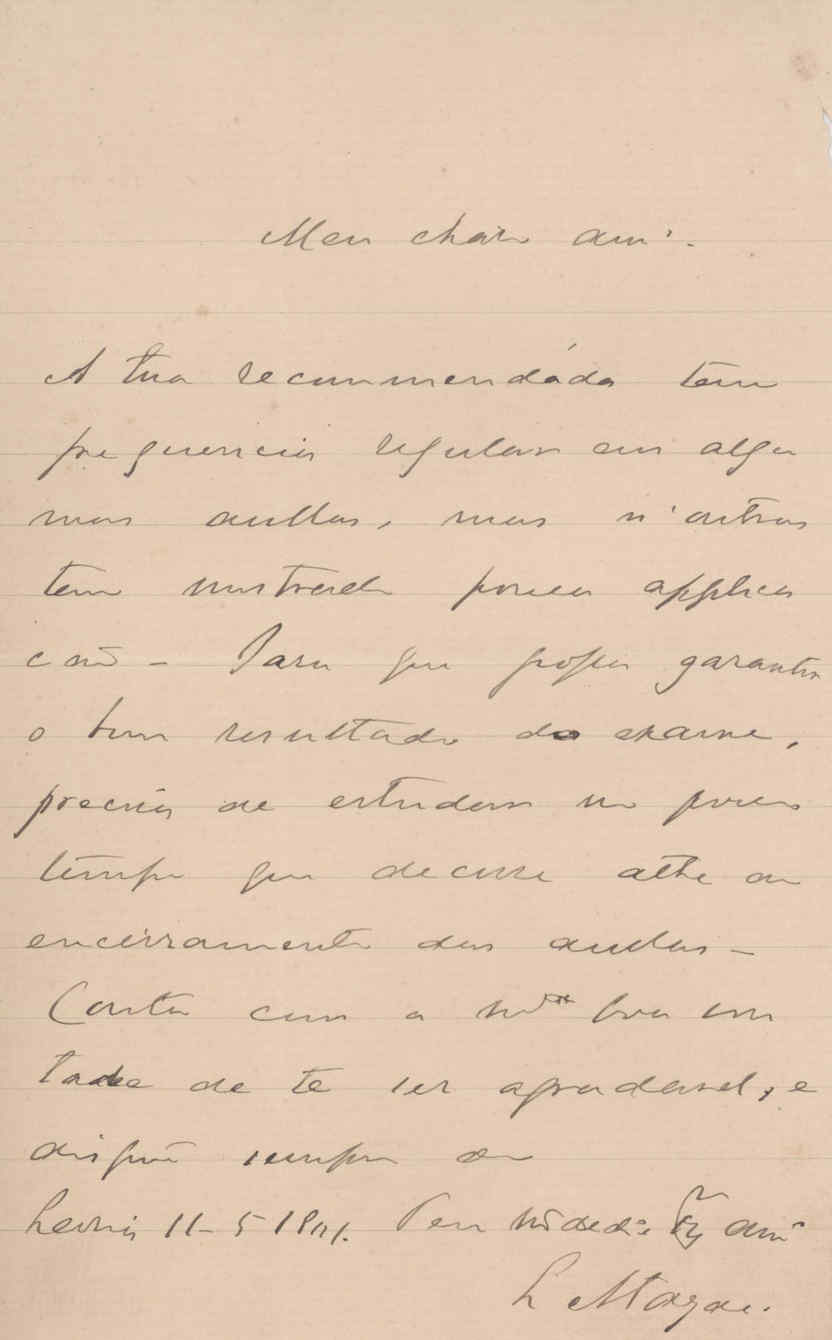 Meu charo am.º
A tua recommendáda tem
frequencia regular em algu
mas aullas, mas n'outras
tem mostrado pouca applica
cão – Para que possa garantir
o bom resultado do exame,
precisa de estudar no pouco
tempo que decorre athe ao
encerramento das aulas –
Conta com a m.ta boa von
tade de te ser agradavel, e
dispõe sempre do
11-5-1891. Teu
am.º
L Magar.